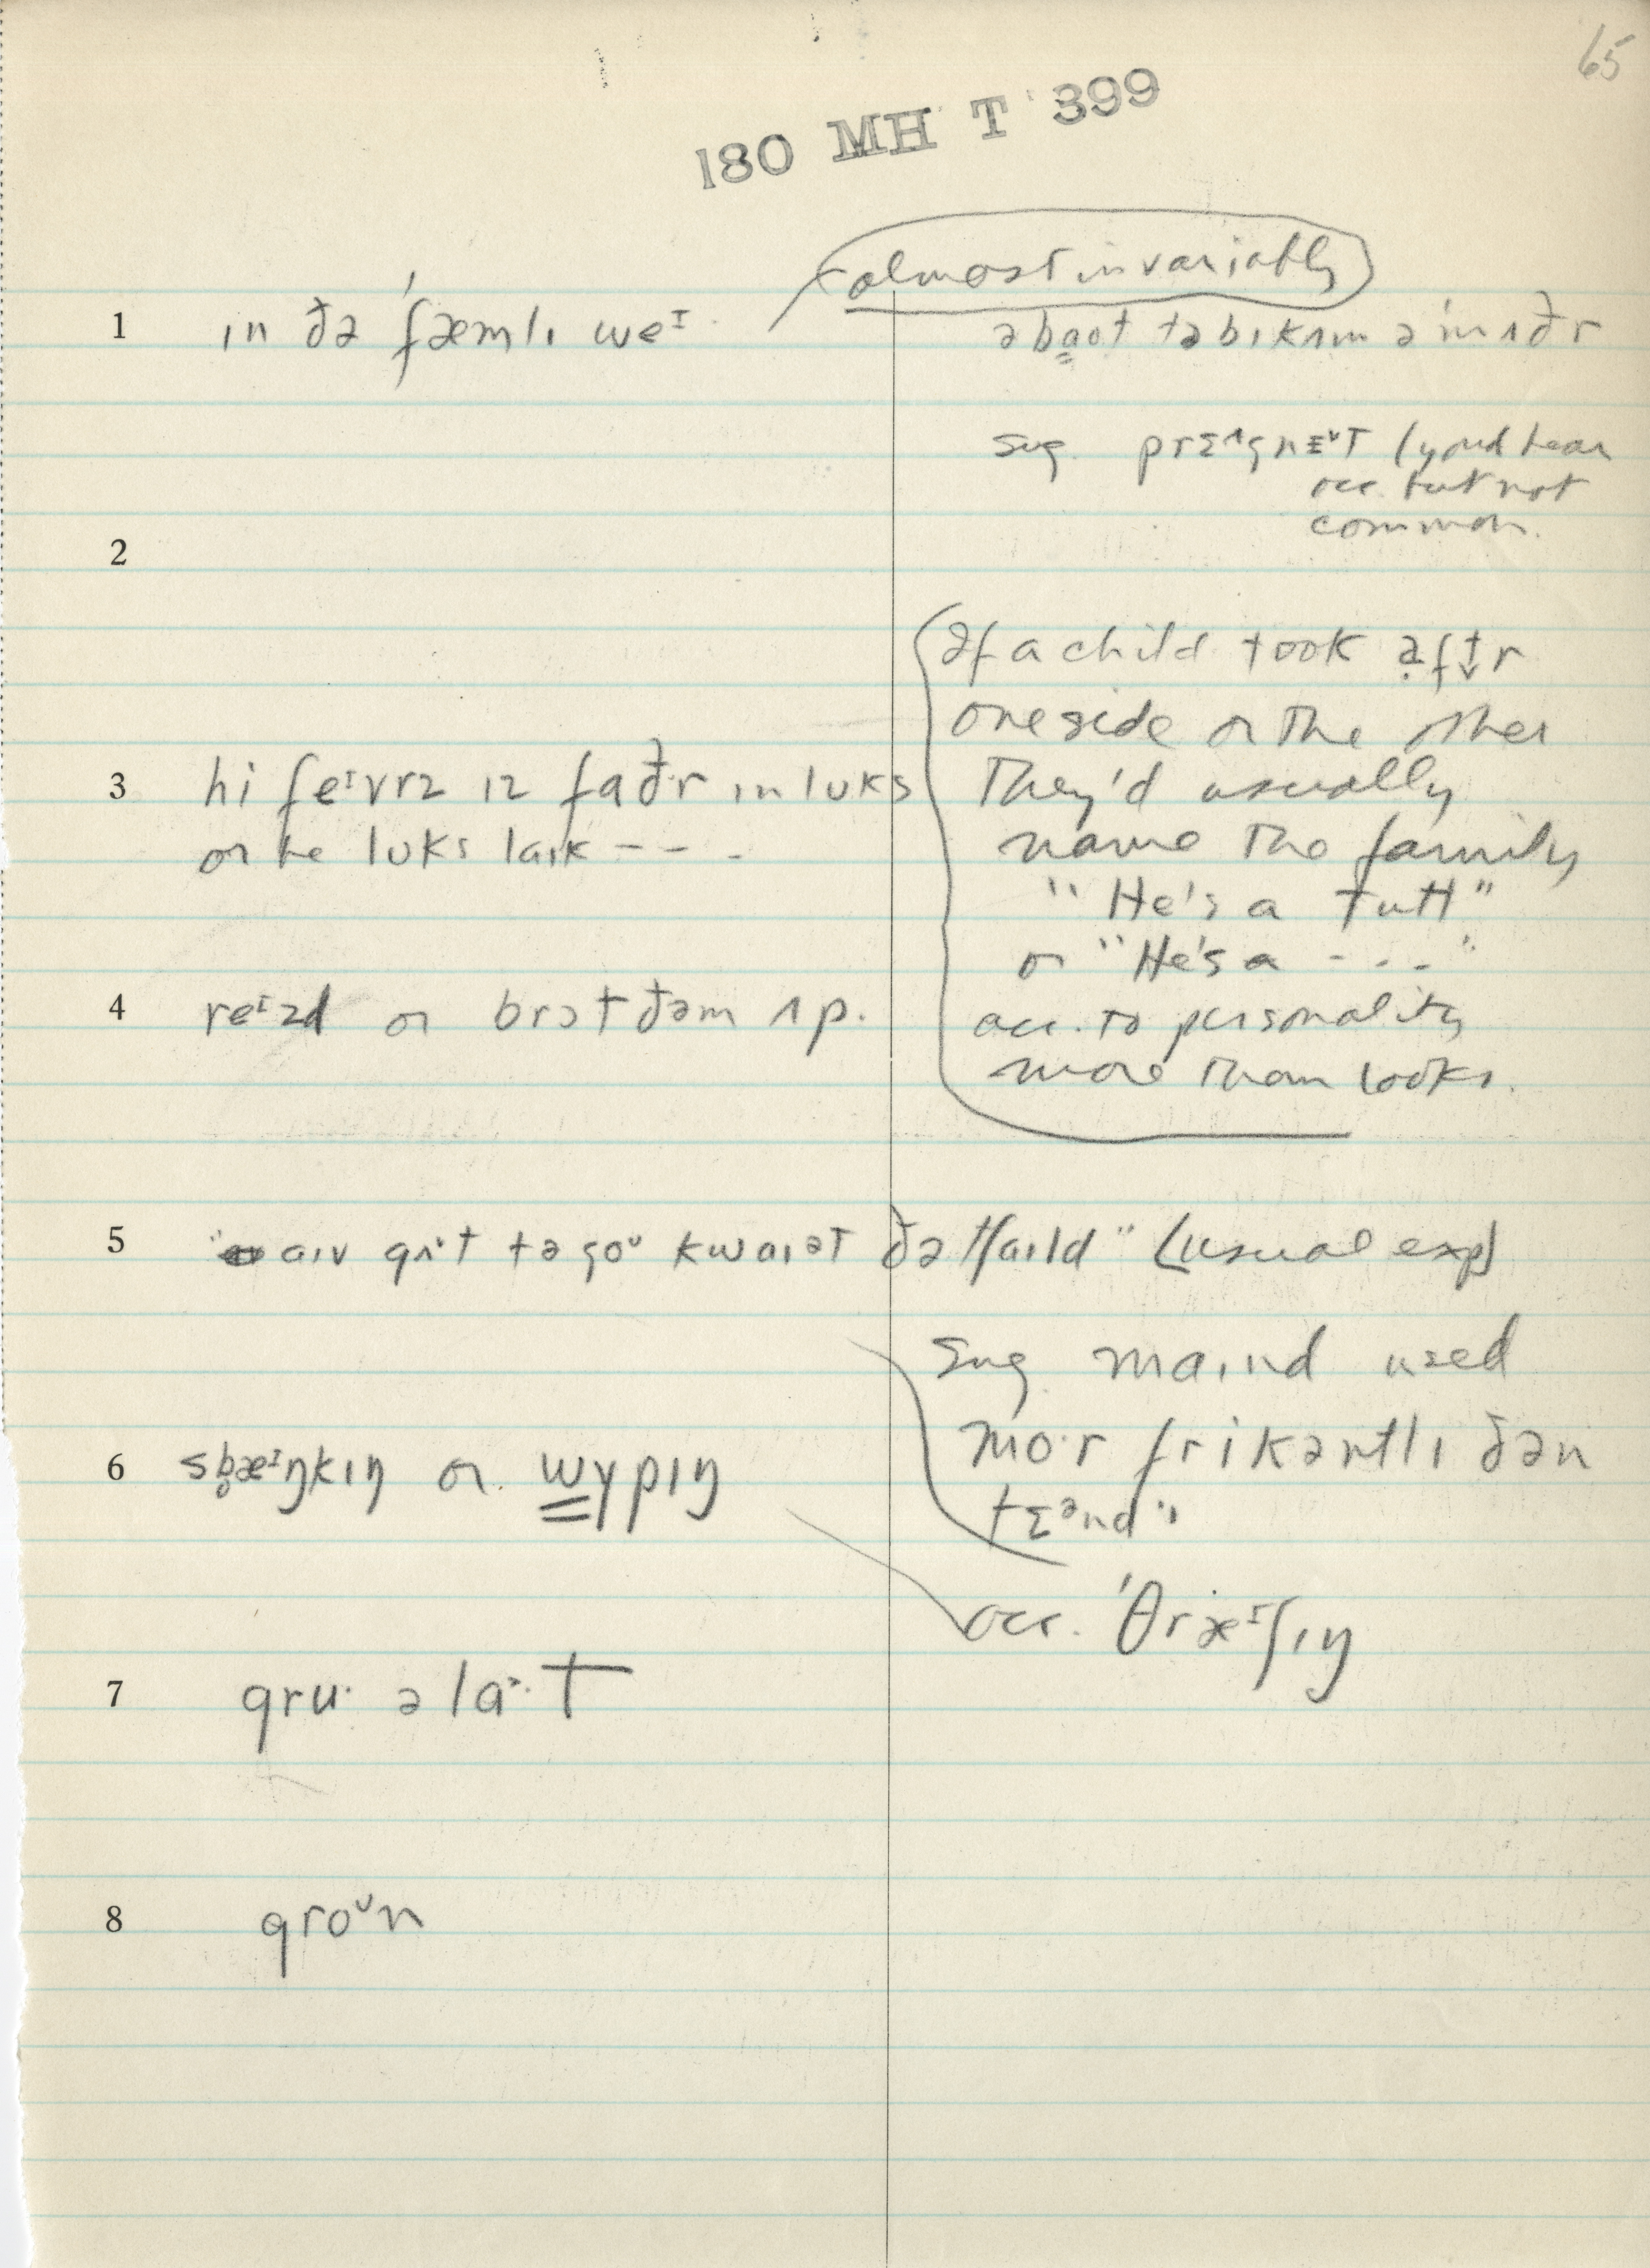 65
180 MH T 399
almost invariably
1 ɪn ðə ˈfæmlɪ weᶦ
əbaʊt tə bɪkʌm ə ˈmʌðr
sug. prɛ^gnɛᵛT (you'd hear
occ. but not
common.
2
If a child took aftr
one side or the other
They'd usually
name the family
"He's a Tutt"
or "He's a - - - -"
acc. to personality
more than looks.
3 hi feᶦvrz ɪz faðr ɪn lʊks
or he lʊks laɪk - - -
4 reᶦzd or brɔt ðəm ʌp.
5 "aɪv gʌt tə goᶷ kwaɪət ðə tʃaɪld" (usual exp)
sug. maɪnd used
mo·r frikəntlɪ ðən
tɛᵊnd"
6 sb̥æᶦŋkɪŋ or wypɪŋ
occ. ˈθræᶦʃɪŋ
7 gru· ə laˑt
8 groᶷn